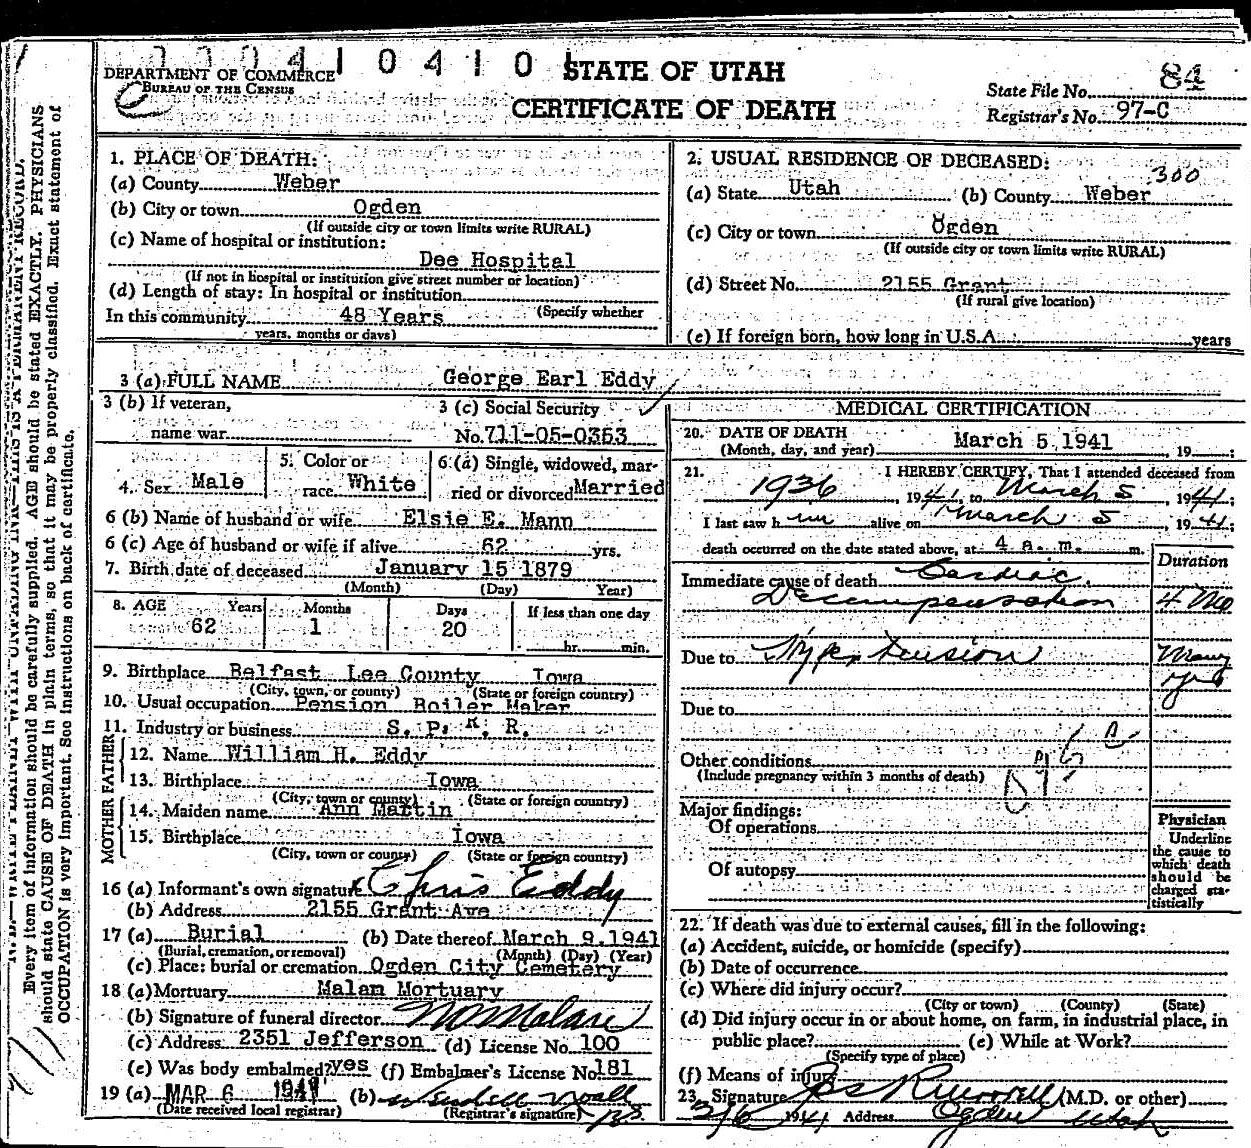 0004104101
STATE OF UTAH
CERTIFICATE OF DEATH
DEPARTMENT OF COMMERCE
BUREAU OF THE CENSUS
State File No. 84
Registrar's No. 97-C
Every item of information should be carefully supplied. AGE should be stated EXACTLY. PHYSICIANS
should state CAUSE OF DEATH in plain terms, so that it may be properly classified. Exact statement of
OCCUPATION is very important. See instructions on back of certificate.
1. PLACE OF DEATH:
(a) County Weber
(b) City or town Ogden
(If outside city or town limits write RURAL)
(c) Name of hospital or institution:
Dee Hospital
(If not in hospital or institution give street number or location)
(d) Length of stay: In hospital or institution
In this community 48 Years (Specify whether
years, months or days)
2. USUAL RESIDENCE OF DECEASED:
300
(a) State Utah (b) County Weber
(c) City or town Ogden
(If outside city or town limits write RURAL)
(d) Street No. 2155 Grant
(If rural give location)
(e) If foreign born, how long in U.S.A. years
3 (a) FULL NAME George Earl Eddy
3 (b) If veteran,
name war
3 (c) Social Security
No. 711-05-0353
4. Sex Male
5. Color or
race White
6 (a) Single, widowed, mar-
ried or divorced Married
6 (b) Name of husband or wife Elsie E. Mann
6 (c) Age of husband or wife if alive 62 yrs.
7. Birth date of deceased January 15 1879
(Month) (Day) Year)
8. AGE Years Months Days If less than one day
62 1 20 hr. min.
9. Birthplace Belfast Lee County Iowa
(City, town, or county) (State or foreign country)
10. Usual occupation Pension Boiler Maker
11. Industry or business S. P. R. R.
FATHER
12. Name William H. Eddy
13. Birthplace Iowa
(City, town or county) (State or foreign country)
MOTHER
14. Maiden name Ann Martin
15. Birthplace Iowa
(City, town or county) (State or foreign country)
16 (a) Informant's own signature Chris Eddy
(b) Address 2155 Grant Ave
17 (a) Burial (b) Date thereof March 9.1941
(Burial, cremation, or removal) (Month) (Day) (Year)
(c) Place: burial or cremation Ogden City Cemetery
18 (a) Mortuary Malan Mortuary
(b) Signature of funeral director Malan
(c) Address 2351 Jefferson (d) License No. 100
(e) Was body embalmed? yes (f) Embalmer's License No. 181
19 (a) MAR 6 1941 (b)
(Date received local registrar) (Registrar's signature)
MEDICAL CERTIFICATION
20. DATE OF DEATH
(Month, day, and year) March 5.1941, 19 ;
21. I HEREBY CERTIFY, That I attended deceased from
1936, 1941, to March 5, 1941;
I last saw h im alive on March 5, 1941;
death occurred on the date stated above, at 4 a. m. m.
Duration
Immediate cause of death Cardiac
Decompensation 4 Mo
Due to Hypertension Many
yrs
Due to
Other conditions
(Include pregnancy within 3 months of death)
Major findings:
Of operations
Of autopsy
Physician
Underline
the cause to
which death
should be
charged sta-
tistically
22. If death was due to external causes, fill in the following:
(a) Accident, suicide, or homicide (specify)
(b) Date of occurrence
(c) Where did injury occur?
(City or town) (County) (State)
(d) Did injury occur in or about home, on farm, in industrial place, in
public place? (e) While at Work?
(Specify type of place)
(f) Means of injury
23. Signature (M.D. or other)
3/6 1941 Address Ogden Utah